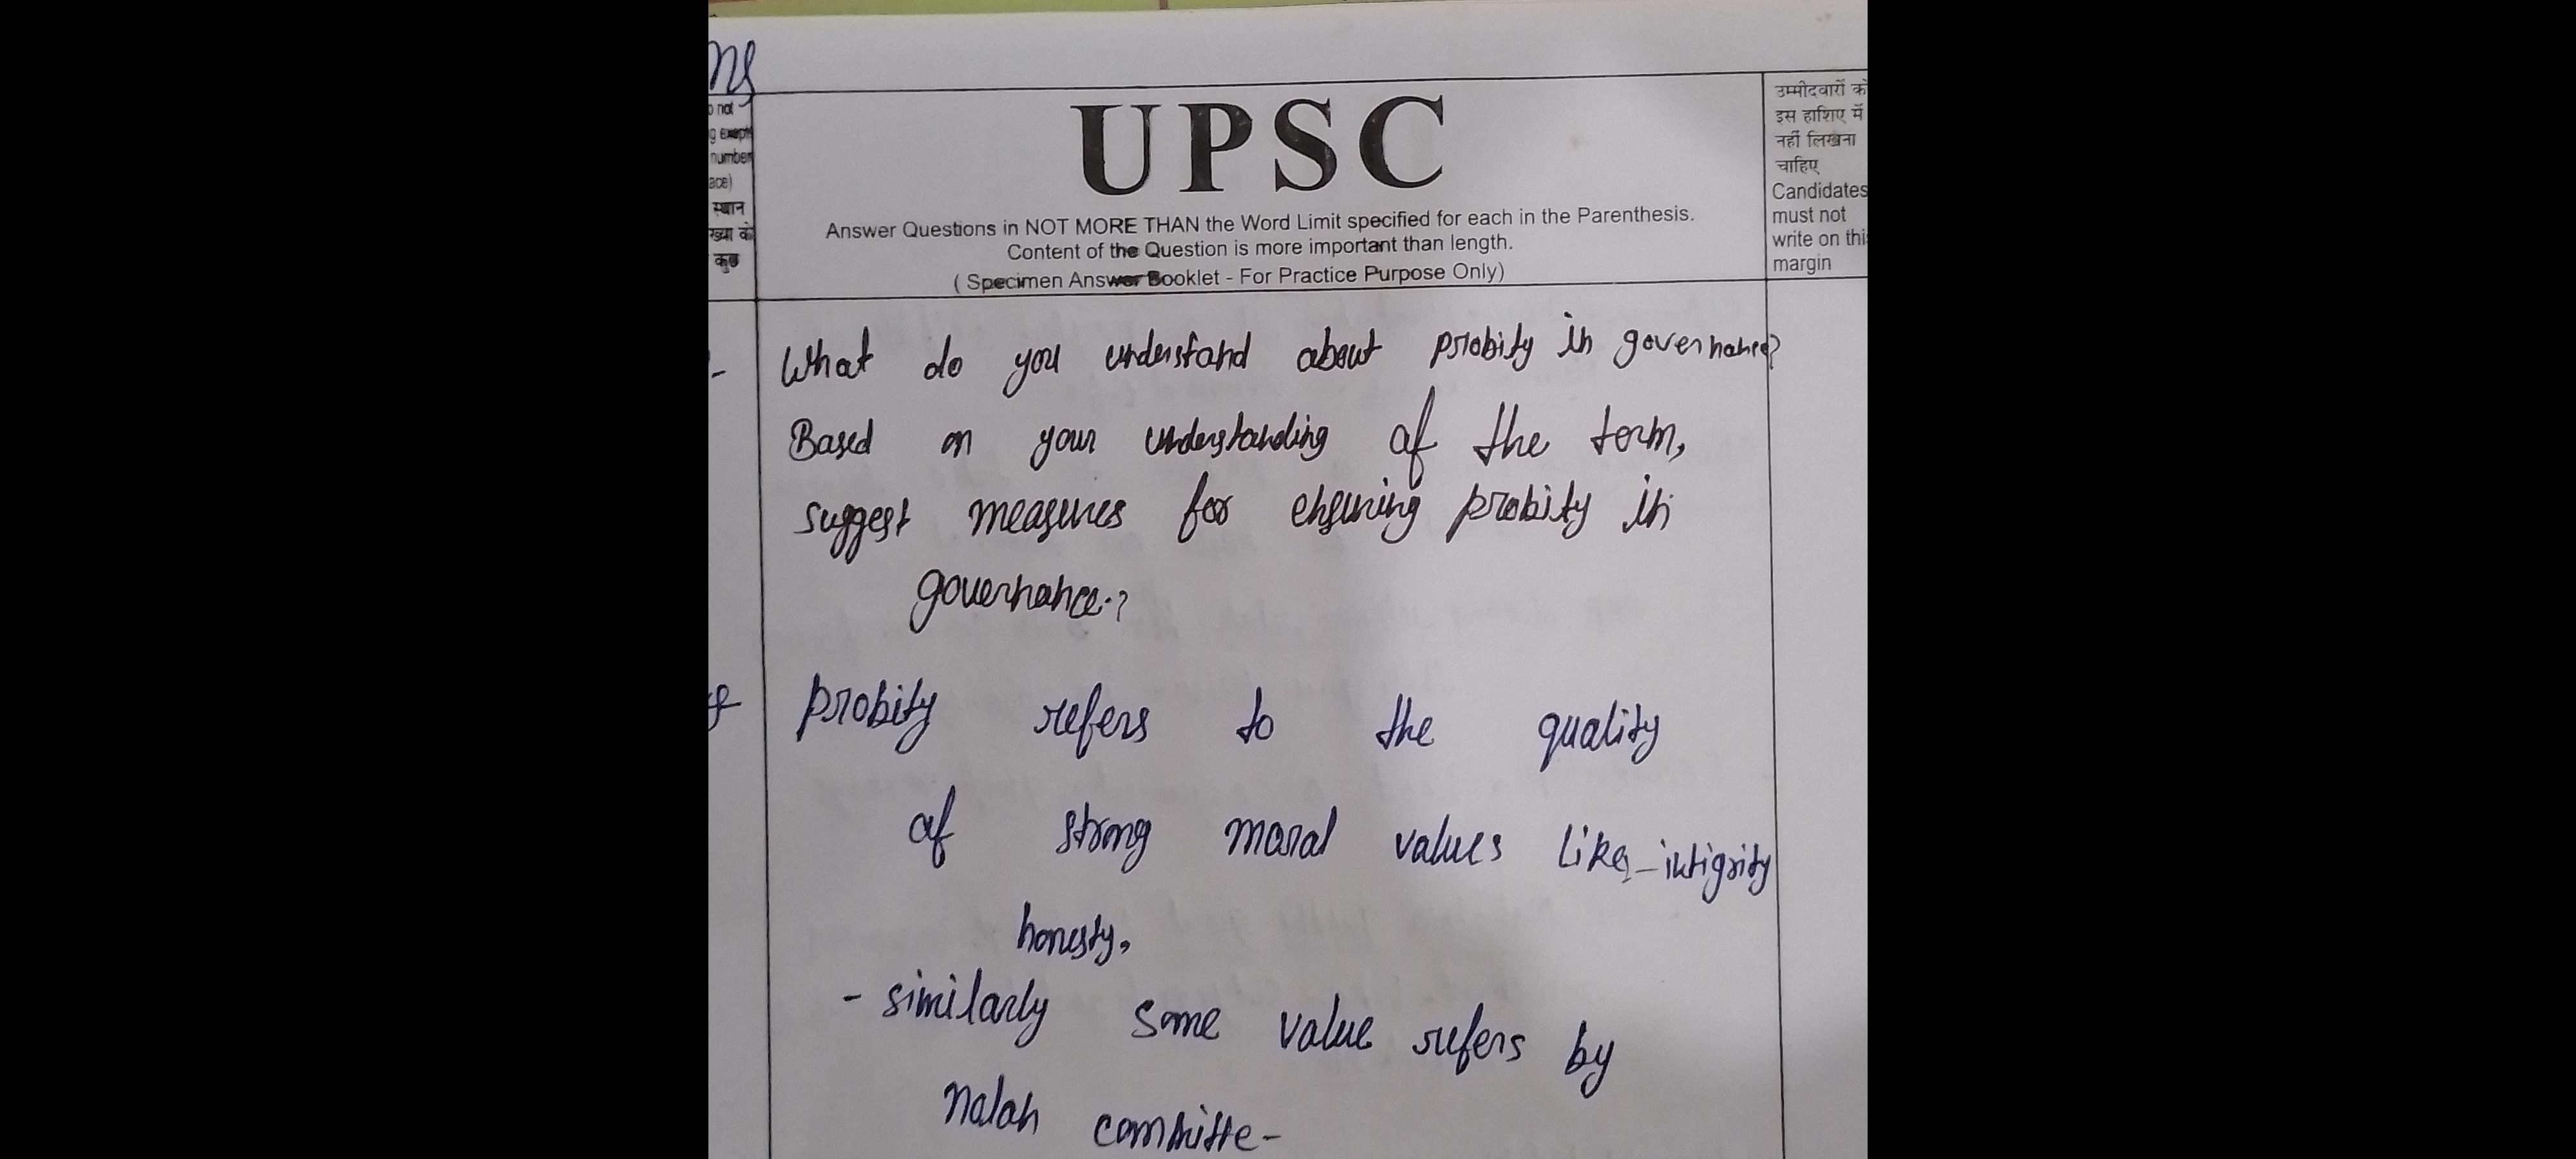 ns
o not
g exept
number
ace)
स्थान
ख्या के
कुछ
UPSC
Answer Questions in NOT MORE THAN the Word Limit specified for each in the Parenthesis.
Content of the Question is more important than length.
( Specimen Answer Booklet - For Practice Purpose Only)
उम्मीदवारों को
इस हाशिए में
नहीं लिखना
चाहिए
Candidates
must not
write on this
margin
What do you understand about probity in governance?
Based on your understanding of the term,
suggest measures for ensuring probity in
governance.?
probity refers to the quality
of strong moral values like-intigrity
honesty,
- similarly some value refers by
nolan committe-